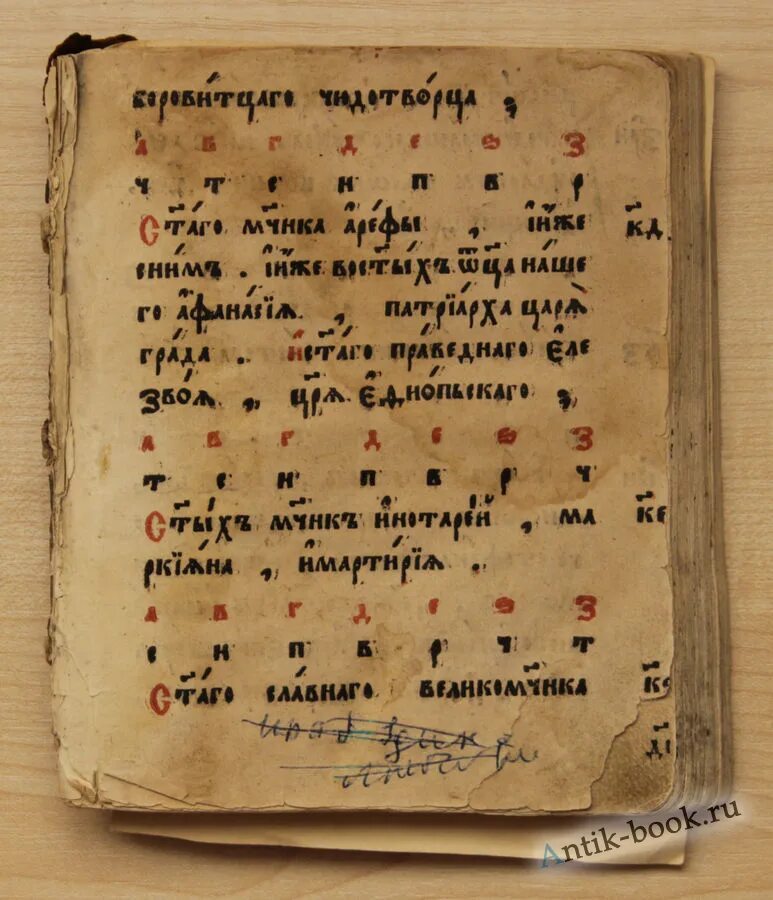 боровитцаго чюдотво́рца ,
а в г д е ѕ з
ч т с н п в р
Ст҃а́го мч҃нка а҆ре́фы , и҆и́же к҃д
сни́мъ . и҆и́же вост҃ы́хъ ѿц҃а на́ше
го а҆фана́сїѧ . , патрїа́рха царѧ̀
гра́да . и҆ст҃а́го пра́веднаго є҆ле
зво́ѧ , цр҃ѧ є҆дио́пьскаго ,
а в г д е ѕ з
т с н п в р ч
Ст҃ы́хъ мч҃нкъ и҆нотаре́й , ма к҃е
ркїѧ́на , и҆марти́рїѧ .
а в г д е ѕ з
с н п в р ч т
Ст҃а́го сла́внаго великомч҃нка
Antik-book.ru